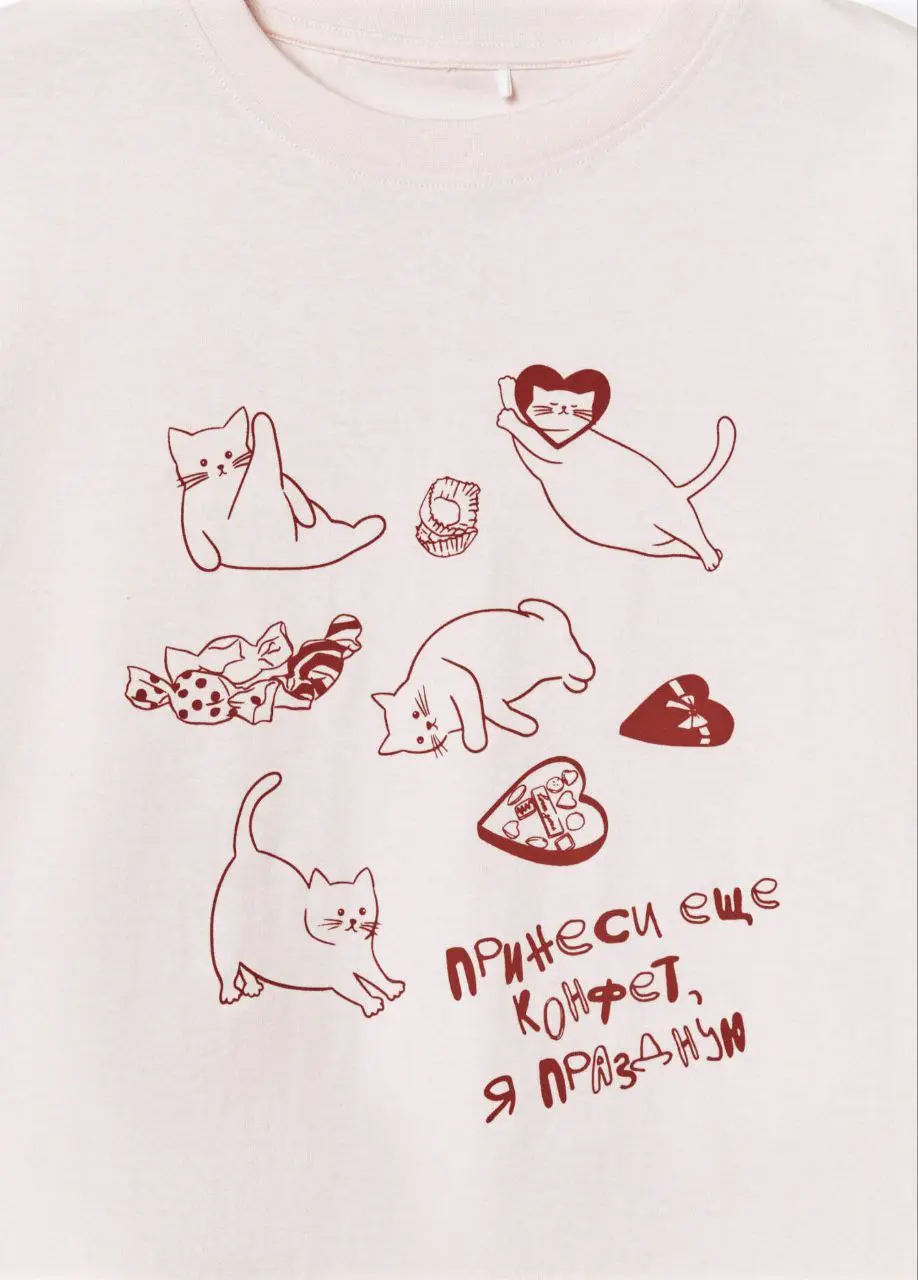 ПРИНЕСИ ЕЩЕ
КОНФЕТ,
Я ПРАЗДНУЮ